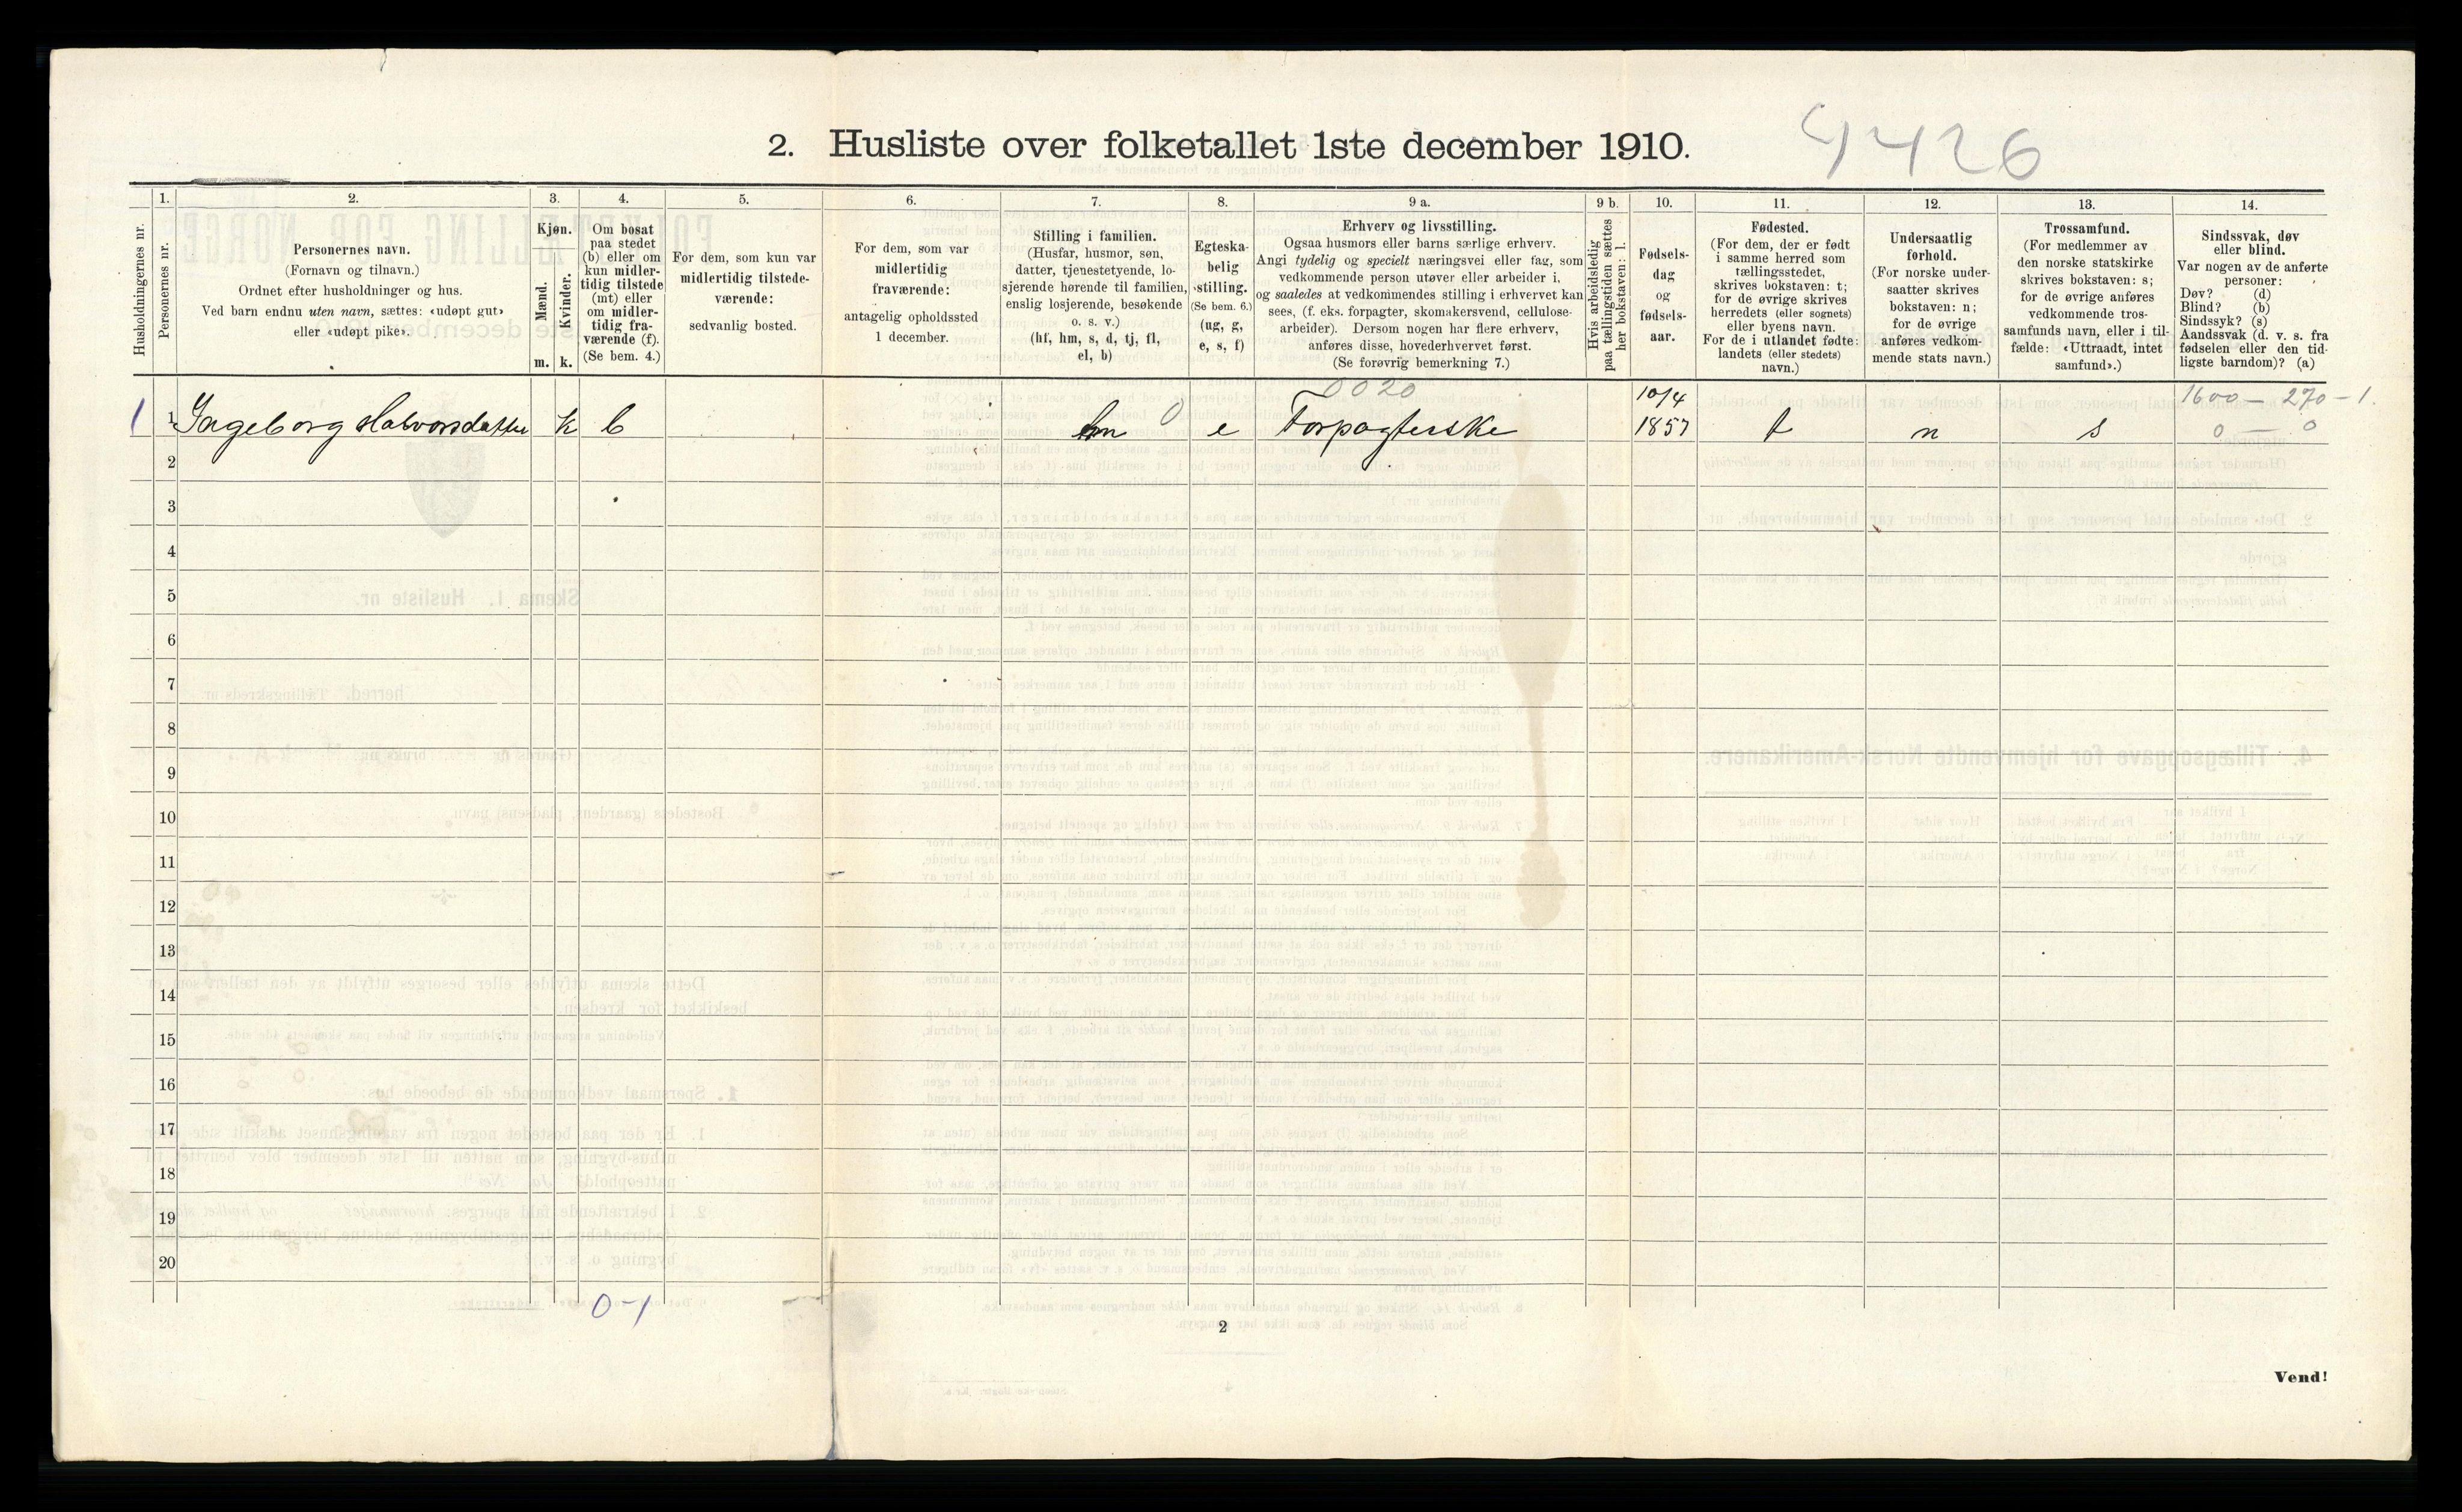 4426
2. Husliste over folketallet 1ste december 1910.
Husholdningernes nr.
1.
Personernes nr.
2.
Personernes navn.
(Fornavn og tilnavn.)
Ordnet efter husholdninger og hus.
Ved barn endnu uten navn, sættes: «udøpt gut»
eller «udøpt pike».
3.
Kjøn.
Mænd.
Kvinder.
m. k.
4.
Om bosat
paa stedet
(b) eller om
kun midler-
tidig tilstede
(mt) eller
om midler-
tidig fra-
værende (f).
(Se bem. 4.)
5.
For dem, som kun var
midlertidig tilstede-
værende:
sedvanlig bosted.
6.
For dem, som var
midlertidig
fraværende:
antagelig opholdssted
1 december.
7.
Stilling i familien.
(Husfar, husmor, søn,
datter, tjenestetyende, lo-
sjerende hørende til familien,
enslig losjerende, besøkende
o. s. v.)
(hf, hm, s, d, tj, fl,
el, b)
8.
Egteska-
belig
stilling.
(Se bem. 6.)
(ug, g,
e, s, f)
9 a.
Erhverv og livsstilling.
Ogsaa husmors eller barns særlige erhverv.
Angi tydelig og specielt næringsvei eller fag, som
vedkommende person utøver eller arbeider i,
og saaledes at vedkommendes stilling i erhvervet kan
sees, (f. eks. forpagter, skomakersvend, cellulose-
arbeider). Dersom nogen har flere erhverv,
anføres disse, hovederhvervet først.
(Se forøvrig bemerkning 7.)
9 b.
Hvis arbeidsledig
paa tællingstiden sættes
her bokstaven: l.
10.
Fødsels-
dag
og
fødsels-
aar.
11.
Fødested.
(For dem, der er født
i samme herred som
tællingsstedet,
skrives bokstaven: t;
for de øvrige skrives
herredets (eller sognets)
eller byens navn.
For de i utlandet fødte:
landets (eller stedets)
navn.)
12.
Undersaatlig
forhold.
(For norske under-
saatter skrives
bokstaven: n;
for de øvrige
anføres vedkom-
mende stats navn.)
13.
Trossamfund.
(For medlemmer av
den norske statskirke
skrives bokstaven: s;
for de øvrige anføres
vedkommende tros-
samfunds navn, eller i til-
fælde: «Uttraadt, intet
samfund».)
14.
Sindssvak, døv
eller blind.
Var nogen av de anførte
personer:
Døv? (d)
Blind? (b)
Sindssyk? (s)
Aandssvak (d. v. s. fra
fødselen eller den tid-
ligste barndom)? (a)
0020 10/4 1600 – 270 – 1.
1 1 Ingeborg Halvorsdatter k b hm 0 e Forpagterske 1857 t n s 0 – 0
2
3
4
5
6
7
8
9
10
11
12
13
14
15
16
17
18
19
20
0-1
2
Vend!